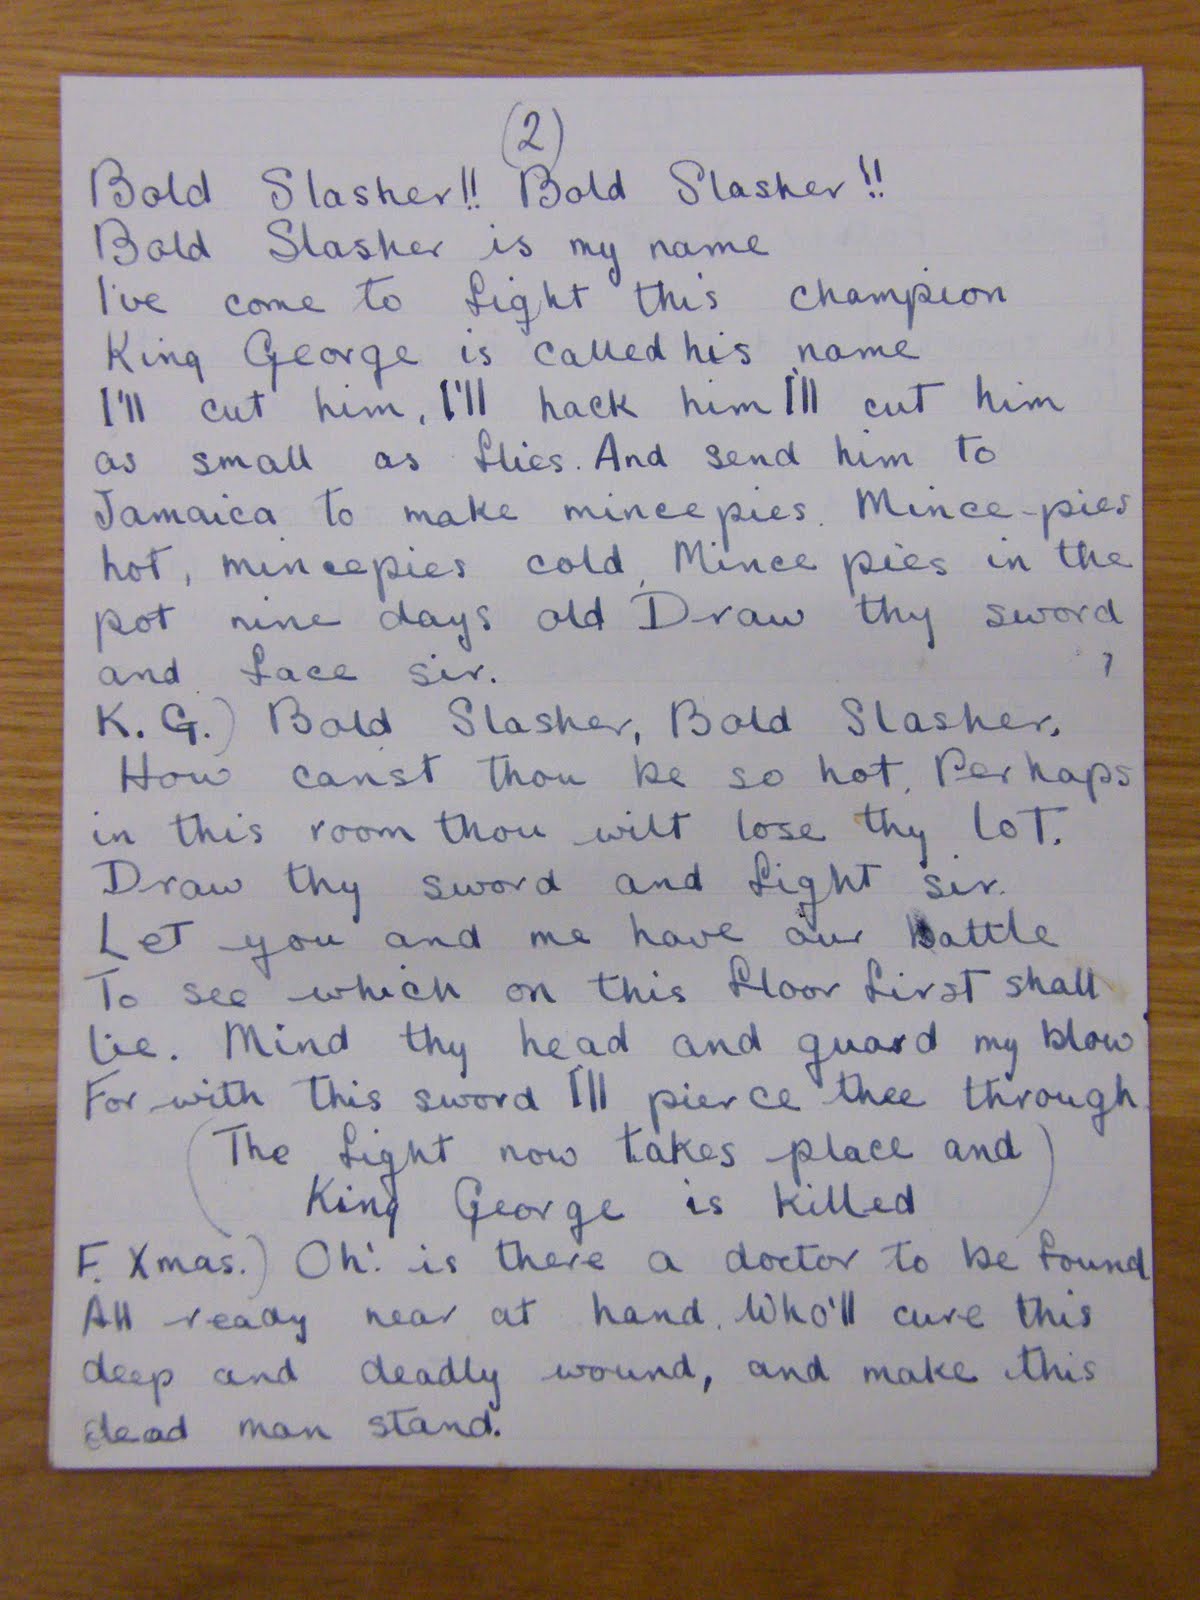 (2)
Bold Slasher!! Bold Slasher!!
Bold Slasher is my name
I've come to fight this champion
King George is called his name
I'll cut him, I'll hack him I'll cut him
as small as flies. And send him to
Jamaica to make mincepies. Mince-pies
hot, mincepies cold, Mince pies in the
pot nine days old Draw thy sword
and face sir.
K. G.) Bold Slasher, Bold Slasher,
How canst thou be so hot, Perhaps
in this room thou wilt lose thy lot.
Draw thy sword and fight sir.
Let you and me have our battle
To see which on this floor first shall
lie. Mind thy head and guard my blow
For with this sword I'll pierce thee through
(The fight now takes place and)
King George is killed
F. Xmas.) Oh! is there a doctor to be found
All ready near at hand. Who'll cure this
deep and deadly wound, and make this
dead man stand.